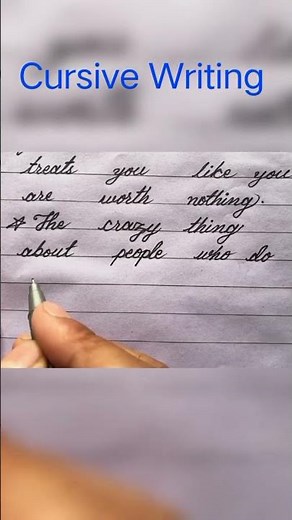 Cursive Writing
treats you like you
are worth nothing.
☆ The crazy thing
about people who do